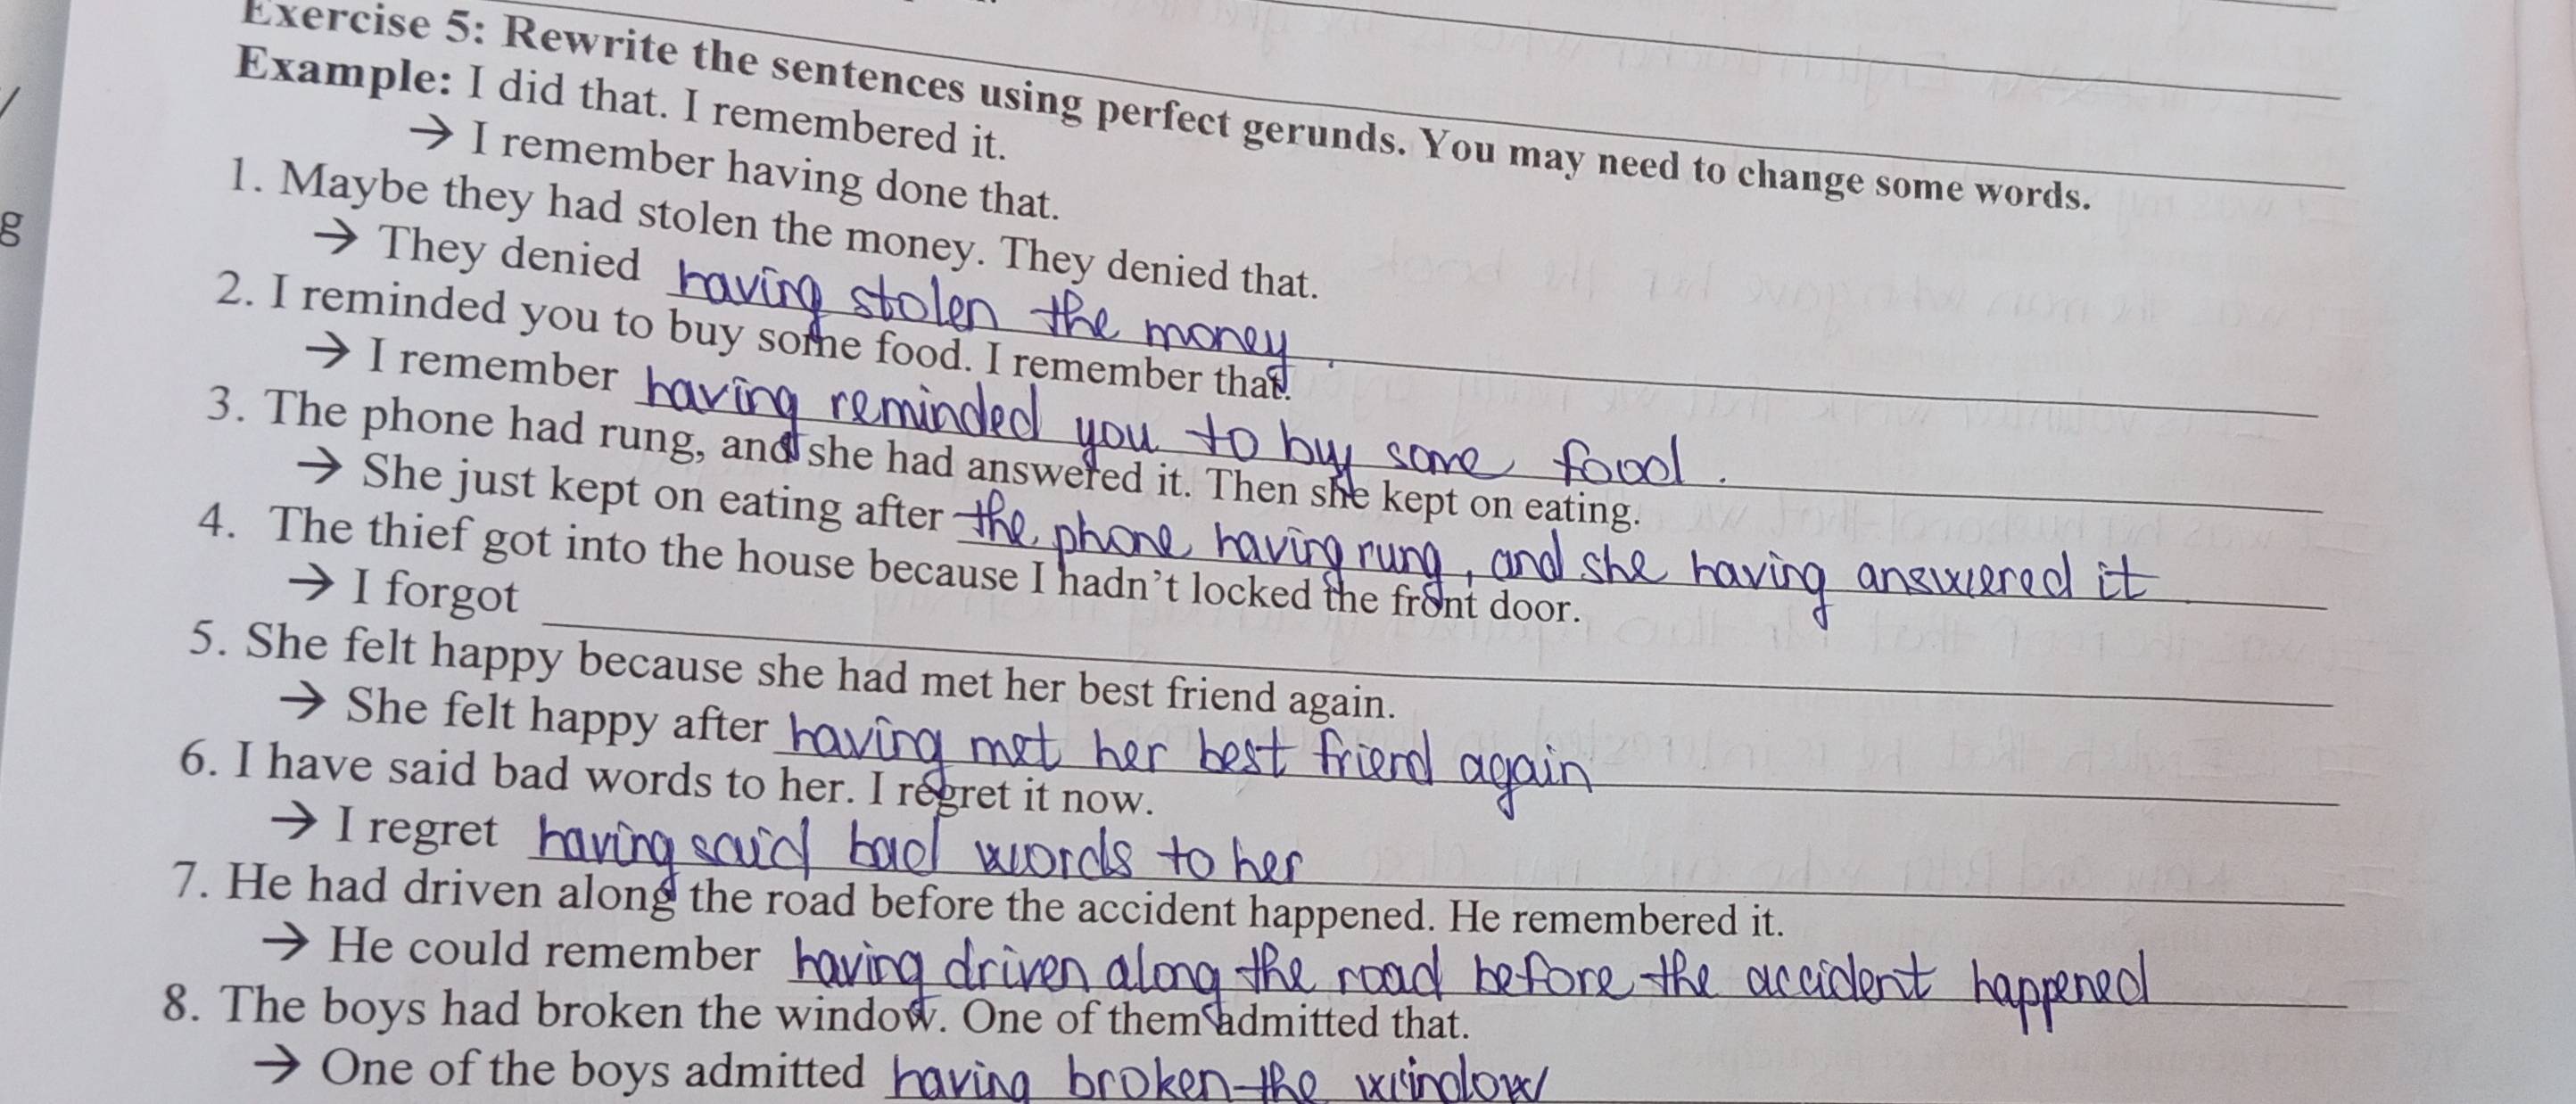 Exercise 5: Rewrite the sentences using perfect gerunds. You may need to change some words.
Example: I did that. I remembered it.
→ I remember having done that.
1. Maybe they had stolen the money. They denied that.
→ They denied having stolen the money.
2. I reminded you to buy some food. I remember that.
→ I remember having reminded you to by some food.
3. The phone had rung, and she had answered it. Then she kept on eating.
→ She just kept on eating after the phone having rung, and she having answered it
4. The thief got into the house because I hadn't locked the front door.
→ I forgot
5. She felt happy because she had met her best friend again.
→ She felt happy after having met her best friend again
6. I have said bad words to her. I regret it now.
→ I regret having said bad words to her
7. He had driven along the road before the accident happened. He remembered it.
→ He could remember having driven along the road before the accident happened
8. The boys had broken the window. One of them admitted that.
→ One of the boys admitted having broken the window
g